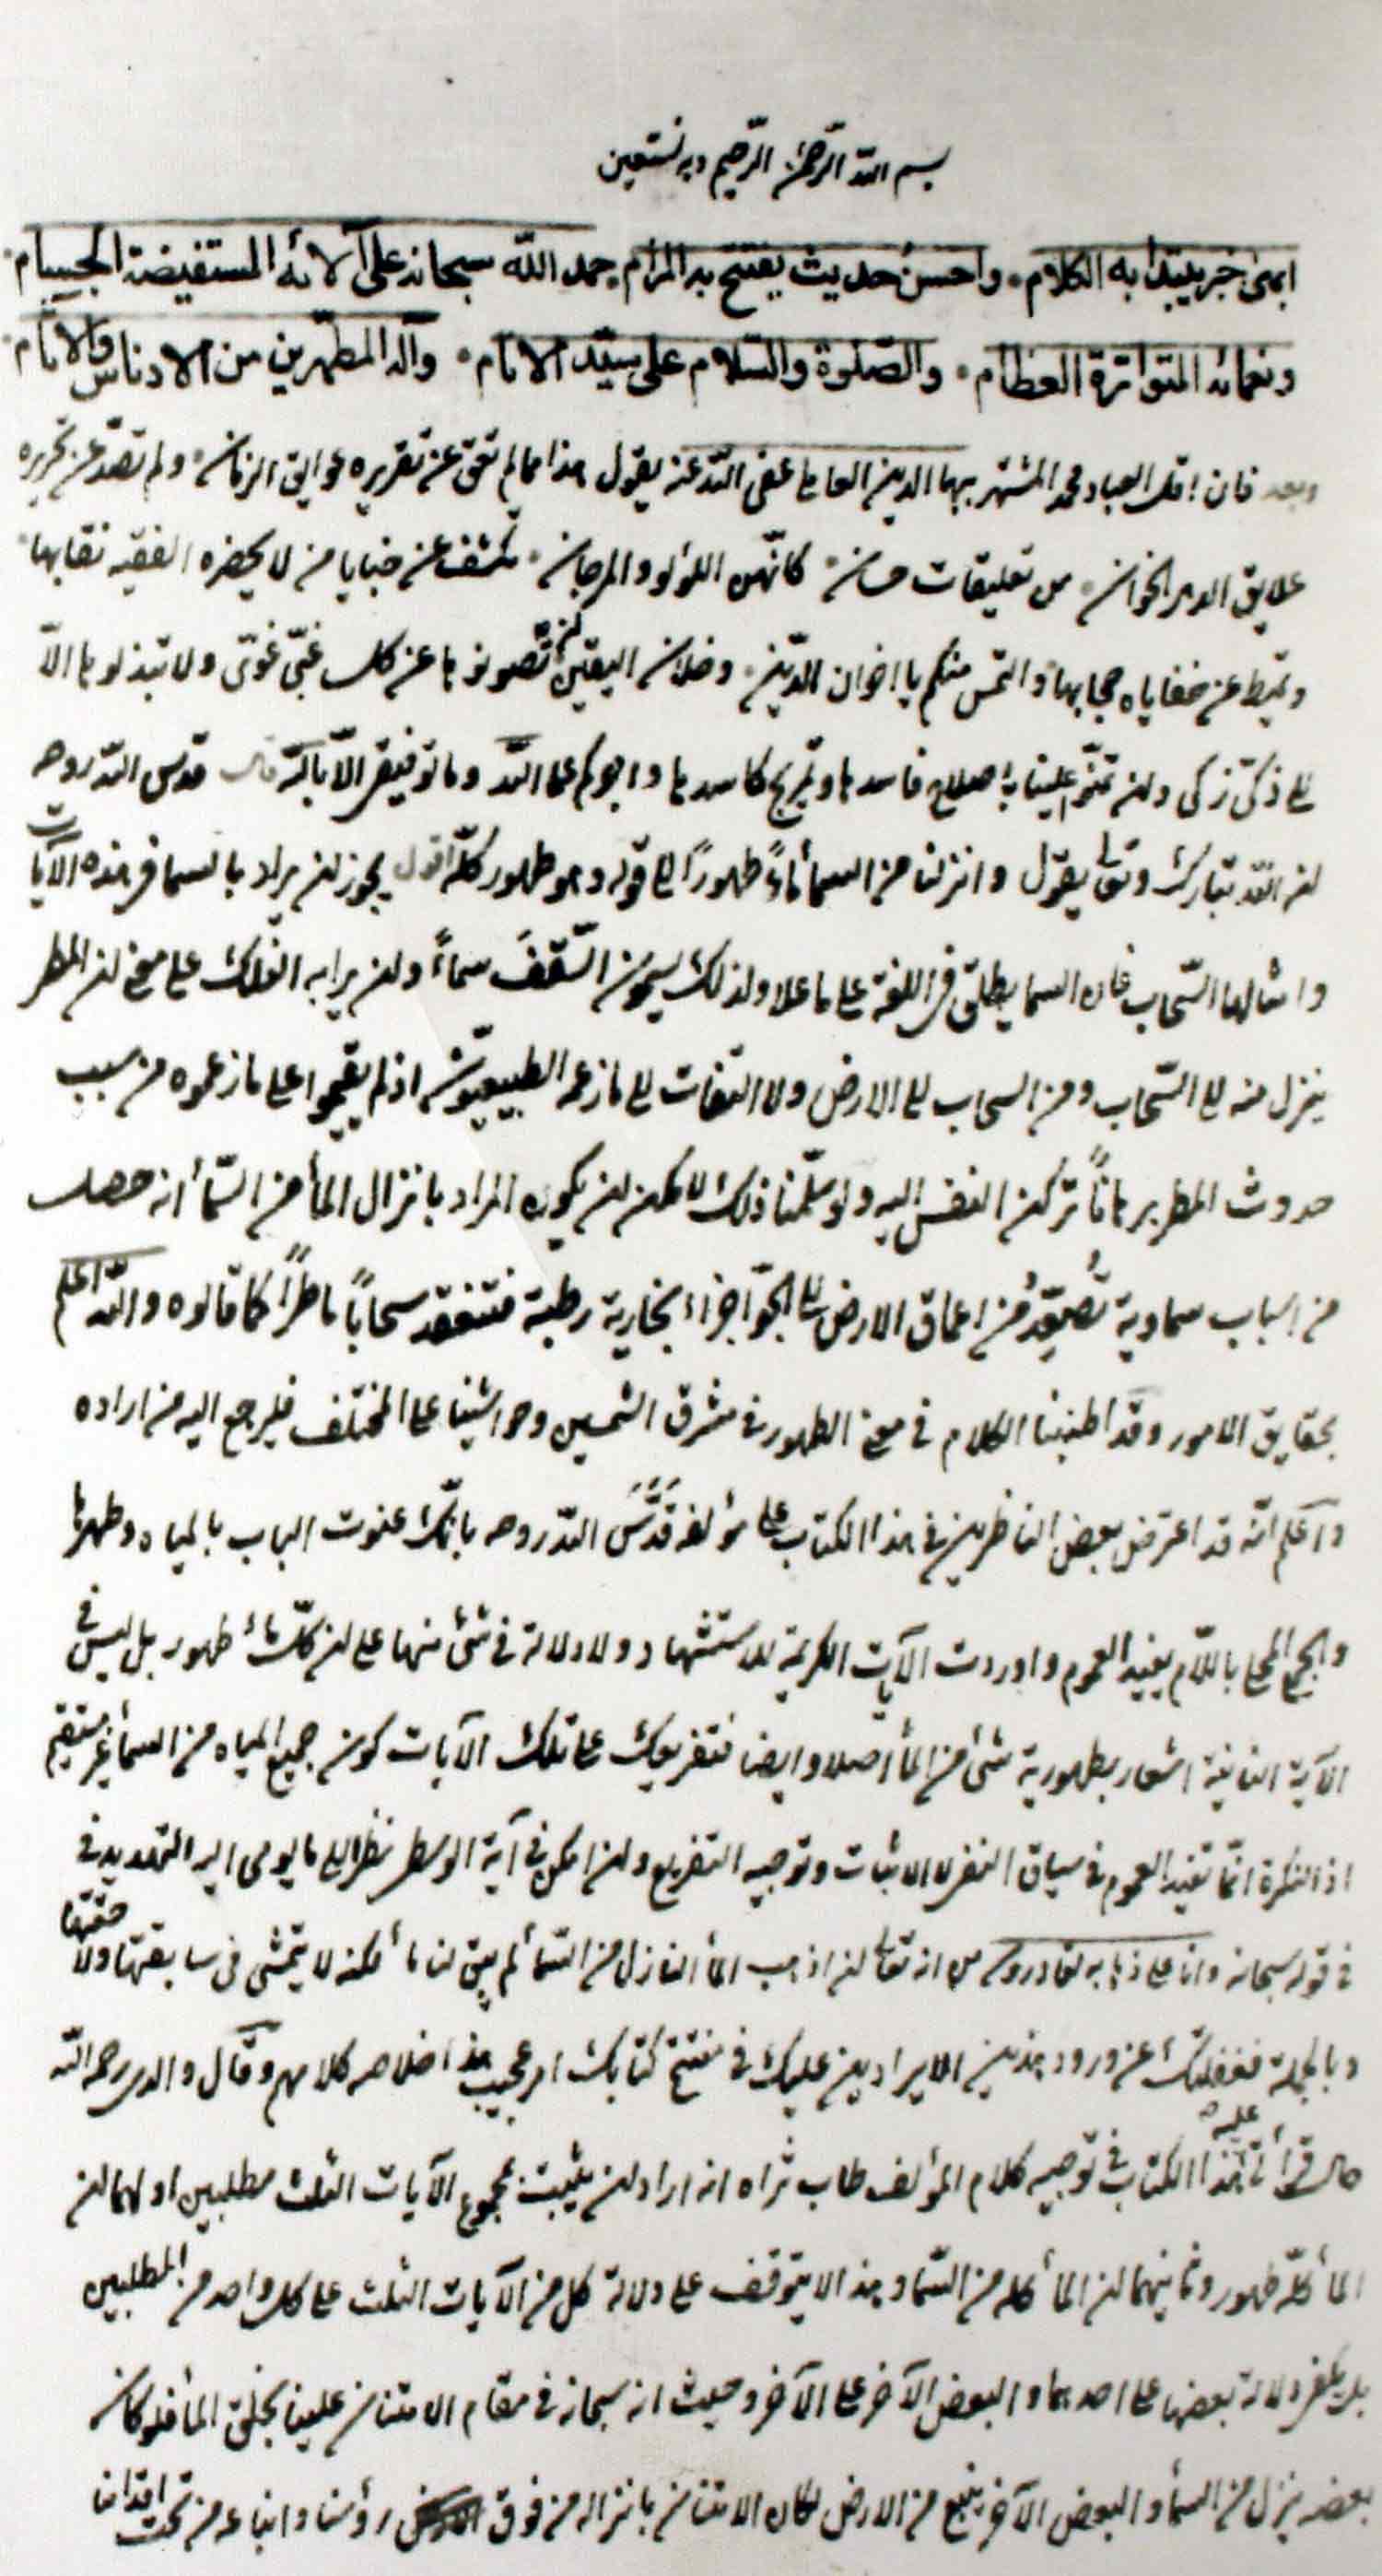 بسم الله الرحمن الرحيم وبه نستعين
ابهى خبر يبتدأ به الكلام واحسن حديث يفتتح به المرام حمد الله سبحانه على آلائه المستفيضة الجسام
ونعمائه المتواترة العظام والصلوة والسلام على سيد الانام وآله المطهرين من الادناس والاثام
وبعد فان اقل العباد محمد المشتهر ببهاء الدين العاملي عفى الله عنه يقول هذا مما لم تعق عن تقريره عوايق الزمان ولم تصد عن تحريره
علايق الدهر الخوان من تعليقات حسان كانهن اللؤلؤ والمرجان تكشف عن خبايا من لا يحضره الفقيه نقابها
وتميط عن خفاياه حجابها والتمس منكم يا اخوان الدين وخلان اليقين ان تصونوها عن كل غبي غوي ولا تبذلوها الا
الى ذكي زكي وان تمنوا علينا باصلاح فاسدها وترويج كاسدها واجركم على الله وما توفيقي الا بالله قال قدس الله روحه
ان الله تبارك وتعالى يقول وانزلنا من السماء ماءً طهورًا الى قوله وهو طهور كله اقول يجوز ان يراد بالسما في هذه الآيات
وامثالها السّحاب فان السما يطلق في اللغة على ما علا ولذلك يسمون السّقفَ سماءً وان يراد به الفلك على معنى ان المطر
ينزل منه الى السّحاب ومن السحاب الى الارض ولا التفات الى ما زعمه الطبيعيون اذ لم يقيموا على ما زعموه من سبب
حدوث المطر برهاناً تركن النفس اليه ولو سلّمنا ذلك لامكن ان يكون المراد بانزال الماء من السّماء انه حصل
من اسباب سماوية تُصعّدُ من اعماق الارض الى الجوّ اجزاء بخارية رطبة فتنعقد سحاباً ماطراً كما قالوه والله اعلم
بحقايق الامور وقد اطنبنا الكلام في معنى الطهور في مشرق الشمسين وحواشينا على المختلف فليرجع اليه من اراده
واعلم انّه قد اعترض بعض الناظرين في هذا الكتاب على مؤلفه قَدَّسَ الله روحه بانّك عنونت الباب بالمياه وطهرها
والجمع المحلى باللّام يفيد العموم واوردت الآيات الكريمة للاستشهاد ولا دلالة في شئ منها على ان كلّ ماء طهور بل ليس في
الآية الثانية اشعار بطهورية شئ من الماء اصلا وايضا فتفريعك على تلك الآيات كون جميع المياه من السماء غير مستقيم
اذ النكرة انّما تفيد العموم في سياق النفي لا الاثبات وتوجيه التفريع وان امكن في آية الوسطى نظرا الى ما يومى اليه التهديد في
في قوله سبحانه وانا على ذهاب به لقادرون من انه تعالى ان اذهب الماء النازل من السّماء لم يبق لنا ماء لكنه لا يتمشى في سابقتها ولاحقتها
وبالجملة فغفلتك عن ورود هذين الايرادين عليك في مفتتح كتابك امر عجيب هذا خلاصه كلامهم وقال والدي رحمه الله
حال قرأتي عليه هذا الكتاب في توجيه كلام المؤلف طاب ثراه انه اراد ان يثبت بمجموع الآيات الثلث مطلبين اولهما ان
الماء كلّه طهور وثانيهما ان الماء كله من السّما وهذا لا يتوقف على دلالة كل من الآيات الثلث على كل واحد من المطلبين
بل يكفي دلالة بعضها على احدهما والبعض الآخر على الآخر وحيث انه سبحانه في مقام الامتنان علينا بخلق الماء فلو كان
بعضه ينزل من السماء والبعض الآخر ينبع من الارض لكان الامتنان بانزاله من فوق رؤسنا وانباعه من تحت اقدامنا